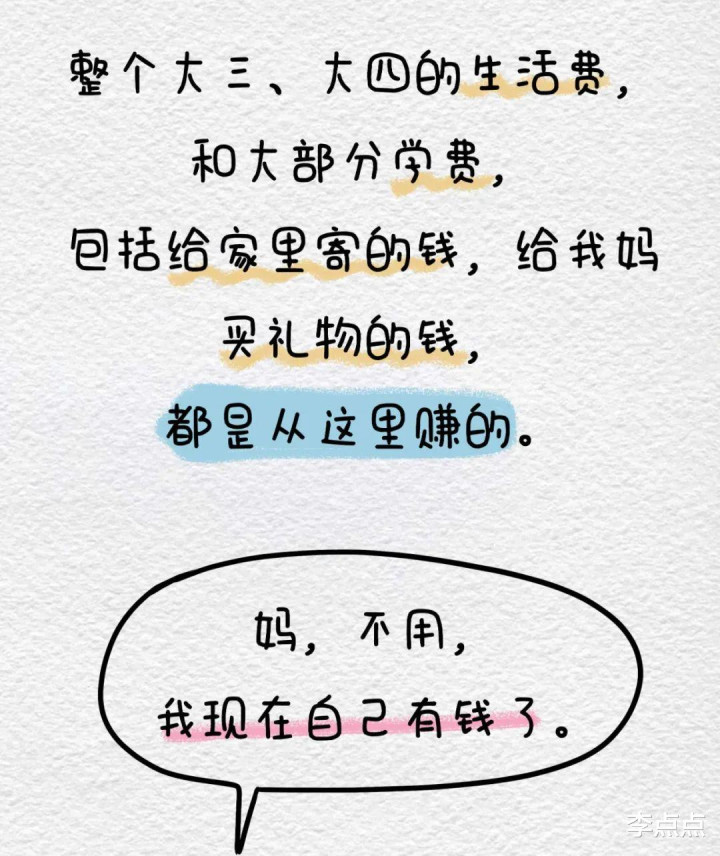 整个大三、大四的生活费，
和大部分学费，
包括给家里寄的钱，给我妈
买礼物的钱，
都是从这里赚的。
妈，不用，
我现在自己有钱了。
李点点